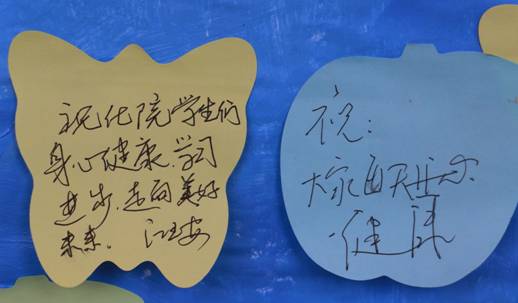 祝化院学生们
身心健康.学习
进步.走向美好
未来. 江玉安
祝:
大家每天开心
健康